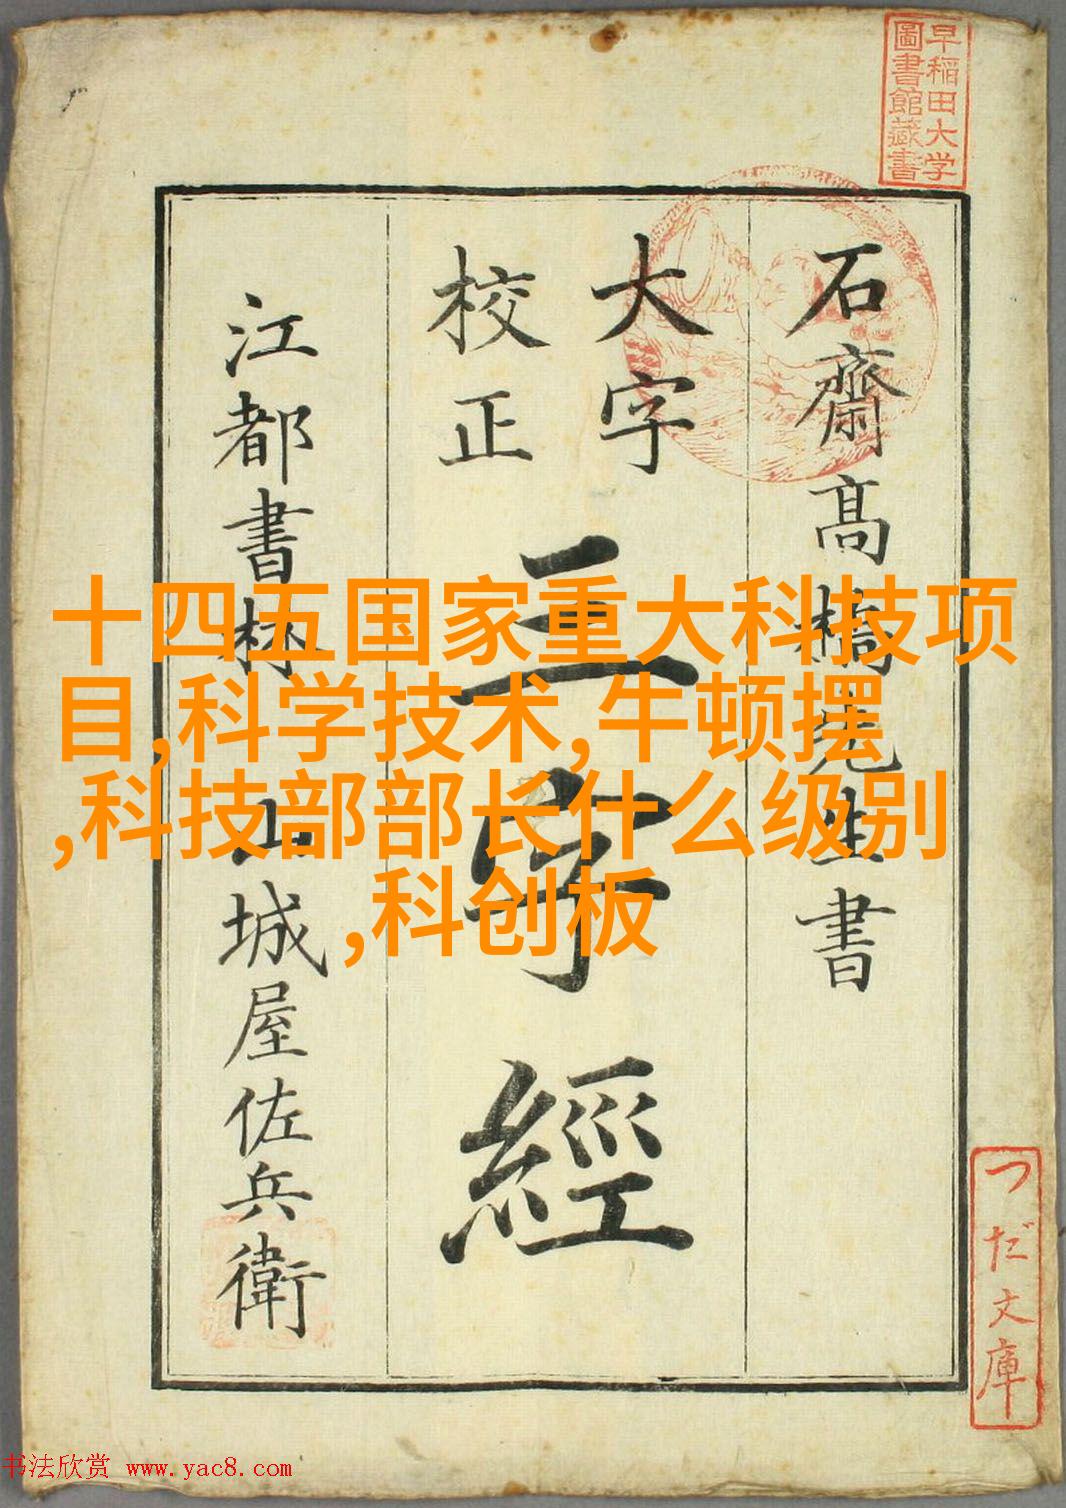 早稲田大学
圖書館藏書
石齋高橋先生書
大字
校正
三字經
江都書林 山城屋佐兵衛
つだ文庫
十四五国家重大科技项
目,科学技术,牛顿摆
,科技部部长什么级别
,科创板
书法欣赏 www.yac8.com